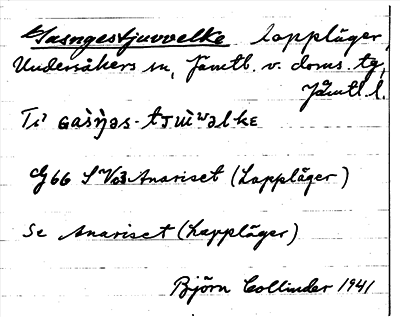 Gasngestjuovelke lappläger,
Undersåkers sn, Jämtl. v. doms. tg,
Jämtl l.
G66 SV03 Anariset (Lappläger)
Se Anariset (Lappläger)
Björn Collinder 1941